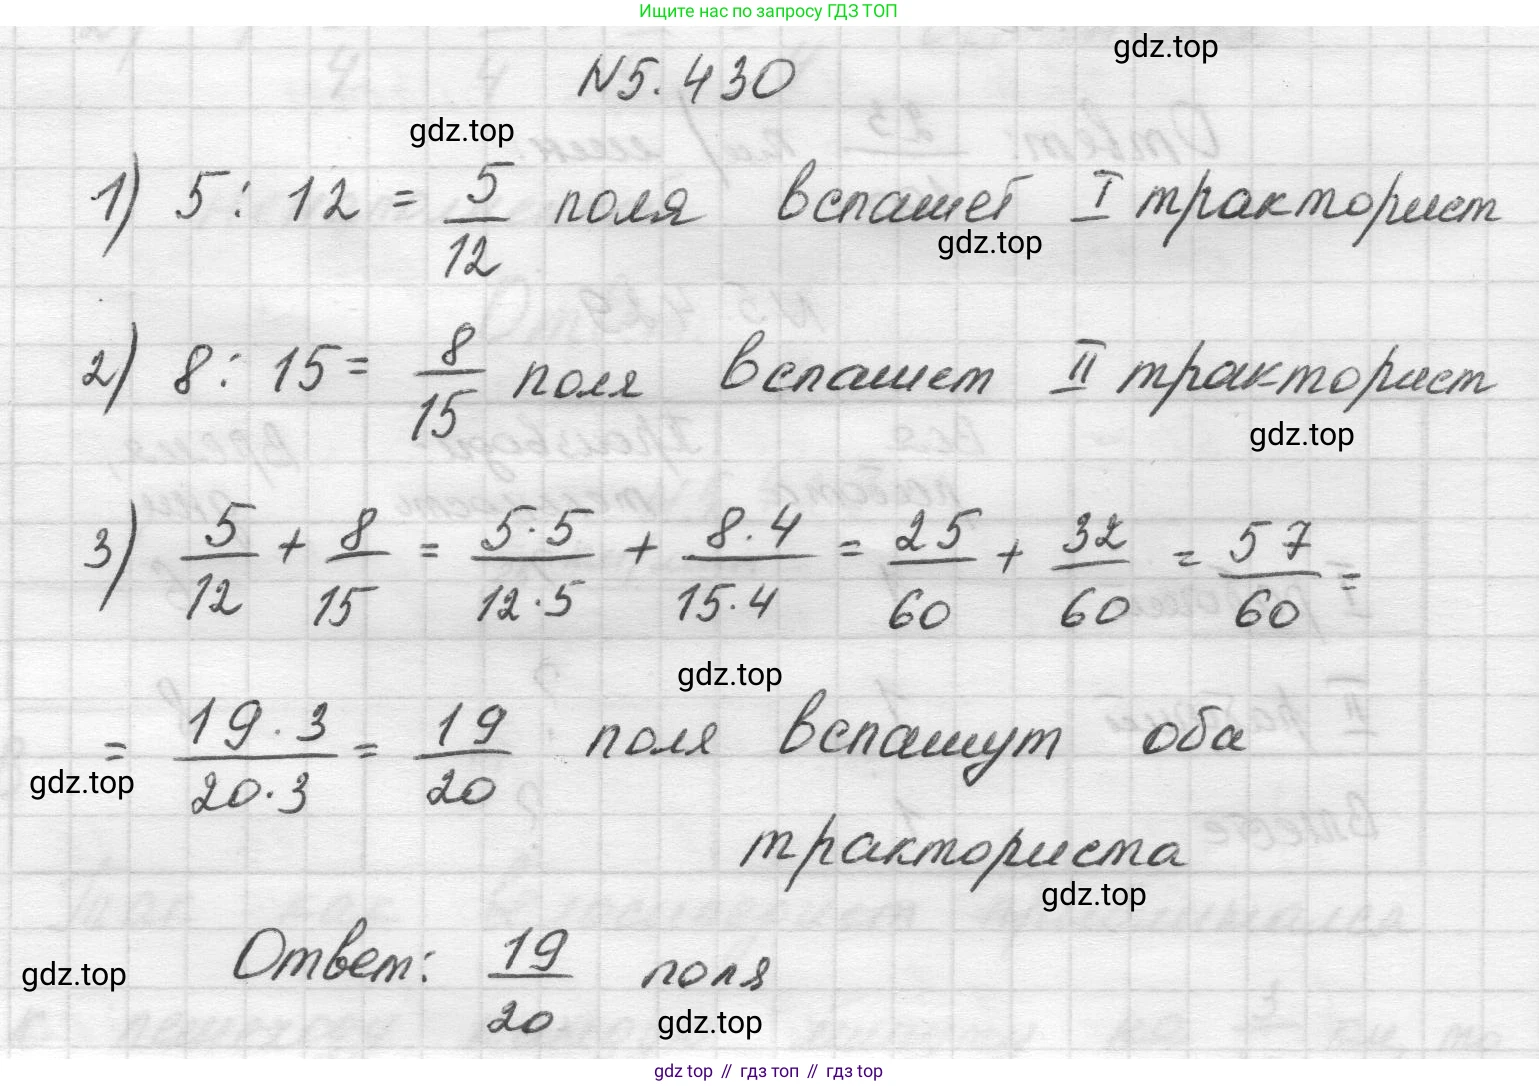 Ищите нас по запросу ГДЗ ТОП
gdz.top
N5.430
gdz.top
1) 5 : 12 = 5/12 поля вспашет I тракторист
gdz.top
2) 8 : 15 = 8/15 поля вспашет II тракторист
gdz.top
3) 5/12 + 8/15 = 5·5/12·5 + 8·4/15·4 = 25/60 + 32/60 = 57/60 =
gdz.top
= 19·3/20·3 = 19/20 поля вспашут оба
gdz.top
тракториста
gdz.top
Ответ: 19/20 поля
gdz.top
gdz.top
gdz top // гдз топ // гдз top